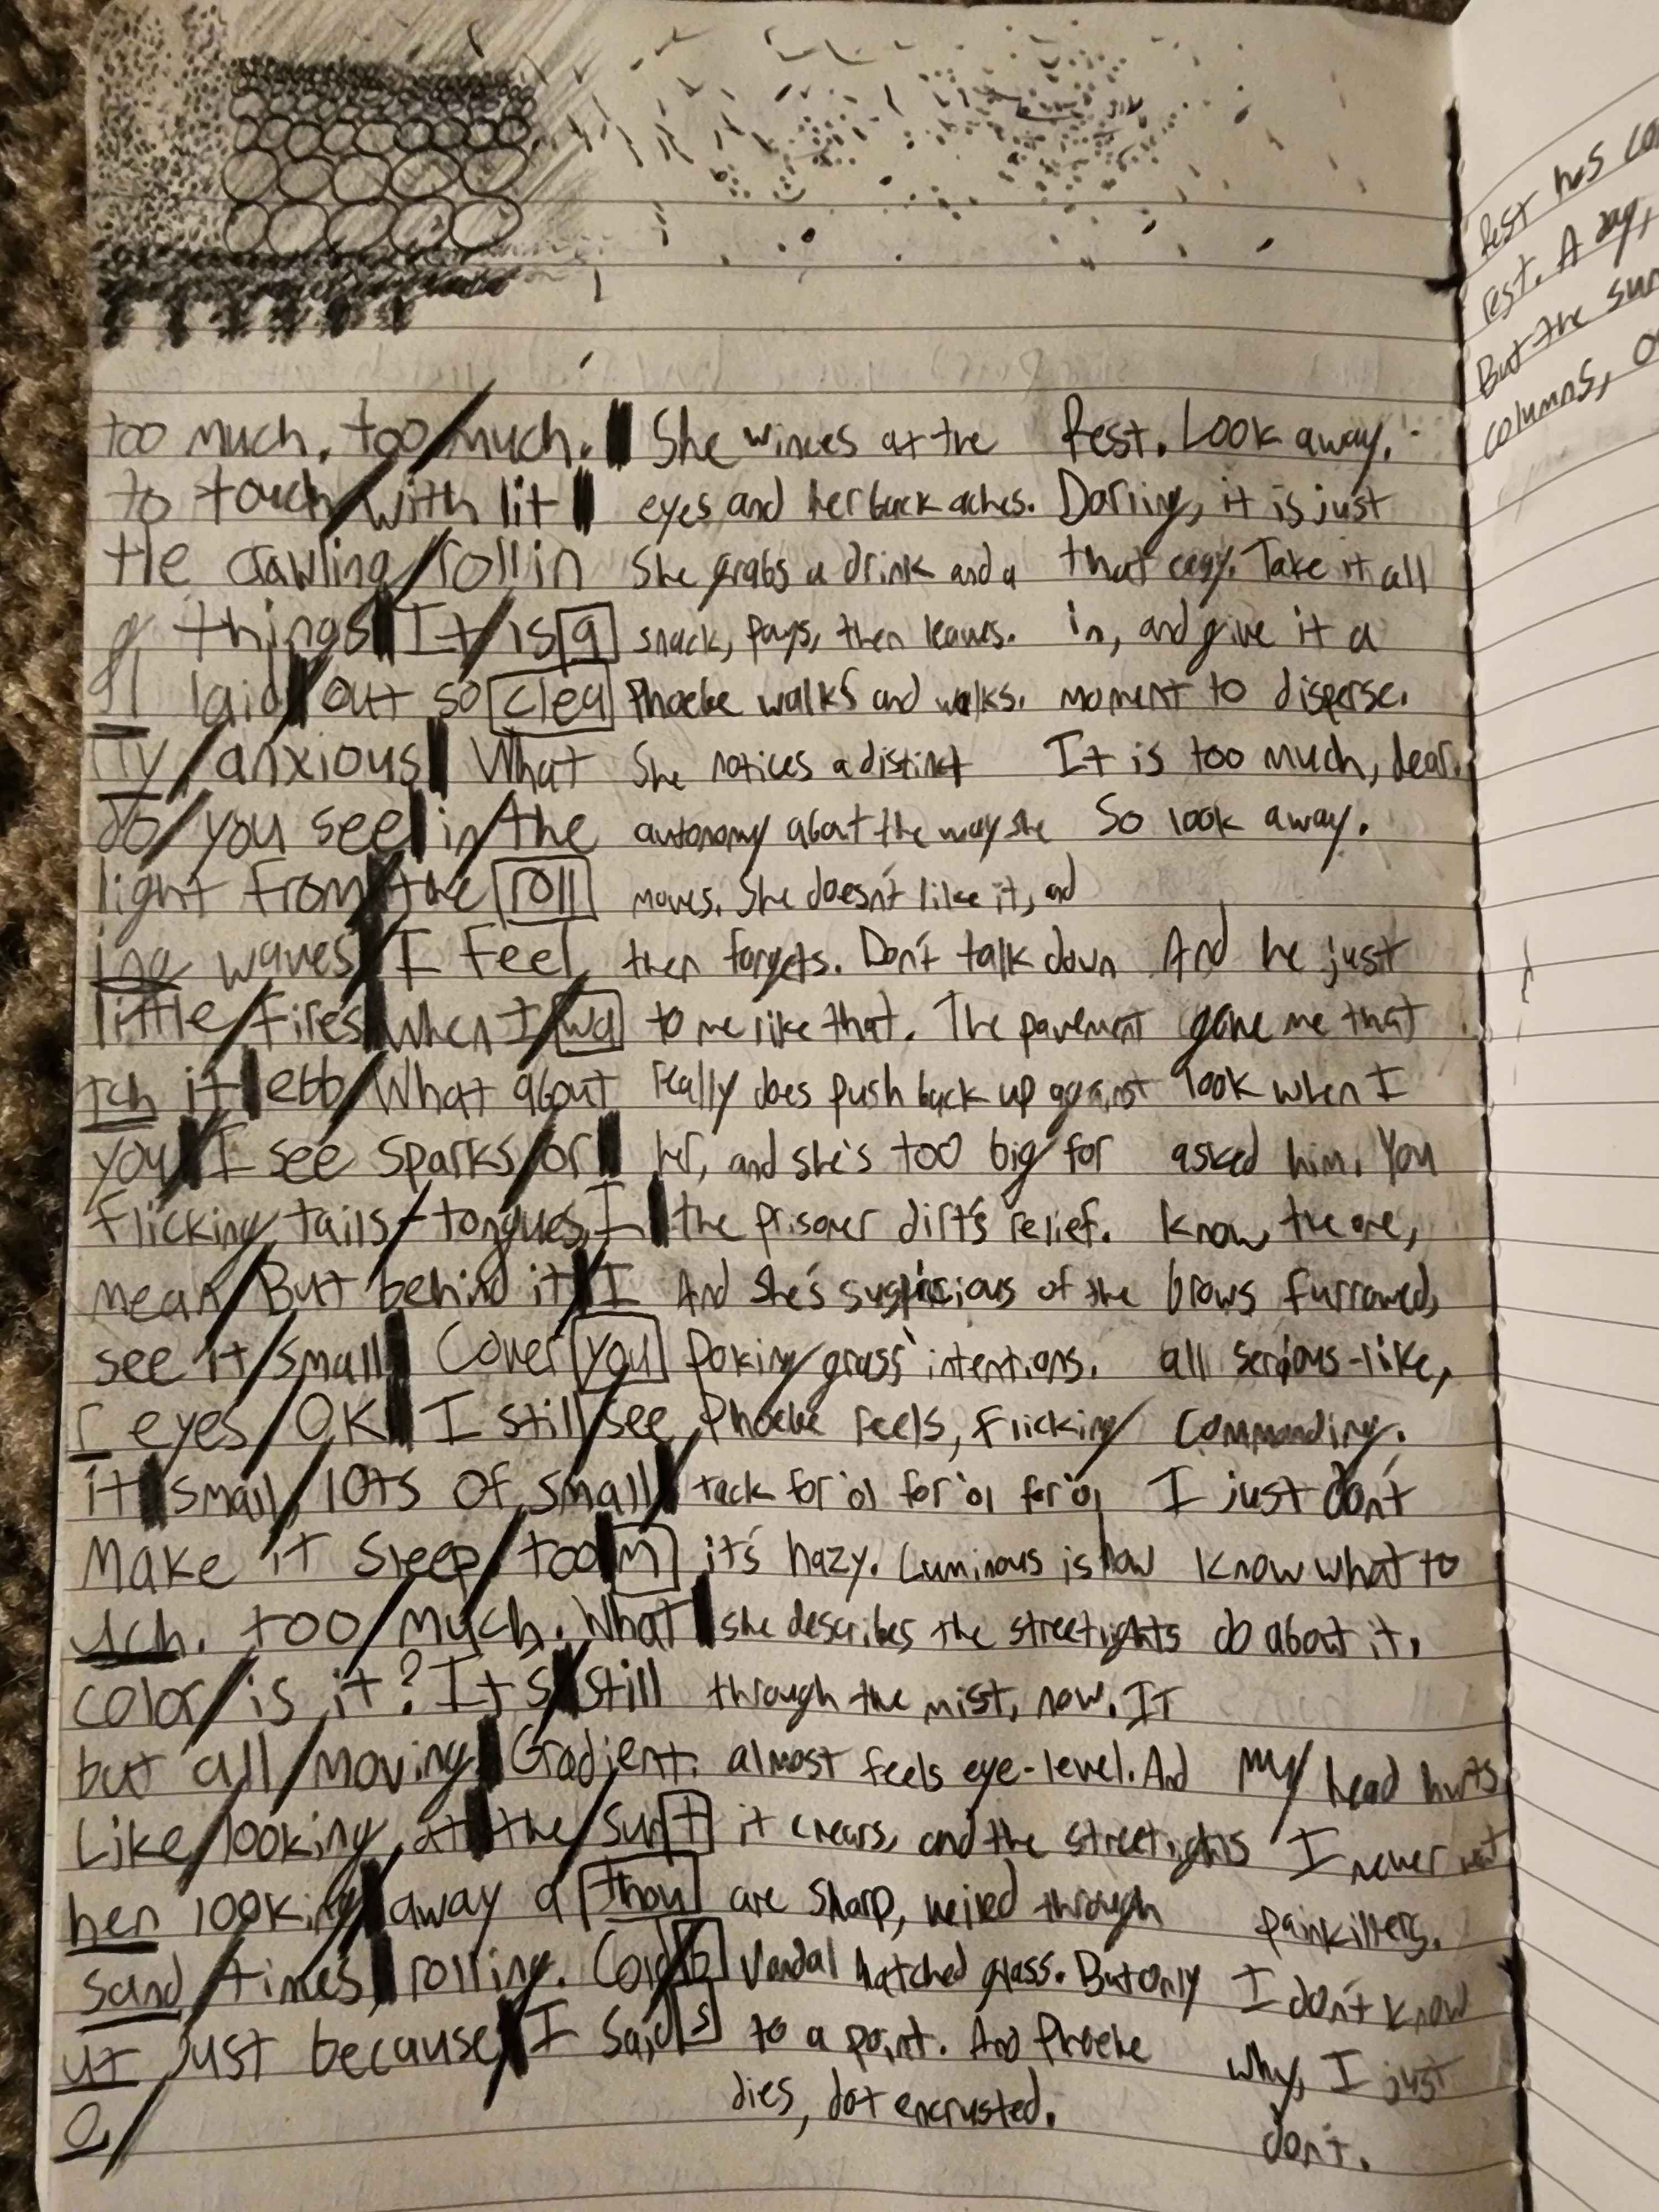 too much. too/much. |
to touch/with lit |
tle crawling/rollin
g things | It/is a
ll laid | out so clea
rly/anxious | What
do/you see | in/the
light from | the roll
ing waves | I feel
little/fires | when I/wa
tch it | ebb/What about
you | I see sparks/or |
flicking tails/tongues, I |
mean/But behind it | I
see it/small | Cover you
r eyes/OK | I still/see
it | small/lots of small |
Make it sleep/too | m
uch. too/much. What |
color/is it? It s | still
but all/moving | Gradient.
Like/looking at | the/sun t
hen looking | away a thou
sand/times | rolling. Cold/b
ut just because | I said s
o/
She winces at the
eyes and her back aches.
She grabs a drink and a
snack, pays, then leaves.
Phoebe walks and walks.
She notices a distinct
autonomy about the way she
moves. She doesn't like it, and
then forgets. Don't talk down
to me like that. The pavement
really does push back up against
her, and she's too big for
the prisoner dirt's relief.
And she's suspicious of the
poking grass' intentions.
Phoebe feels, flicking
tack for 'ol for 'ol for 'ol
it's hazy. Luminous is how
she describes the streetlights
through the mist, now. It
almost feels eye-level. And
it clears, and the streetlights
are sharp, weired through
Vandal hatched glass. But only
to a point. And Phoebe
dies, dot encrusted.
Rest. Look away.
Darling, it is just
that easy. Take it all
in, and give it a
moment to disperse.
It is too much, dear.
So look away.
And he just
gave me that
look when I
asked him. You
know, the one,
brows furrowed,
all serious-like,
commanding.
I just don't
know what to
do about it.
My head hurts
I never want
painkillers.
I don't know
why, I just
don't.
Rest has co
rest. A day,
But the sun
columns, o